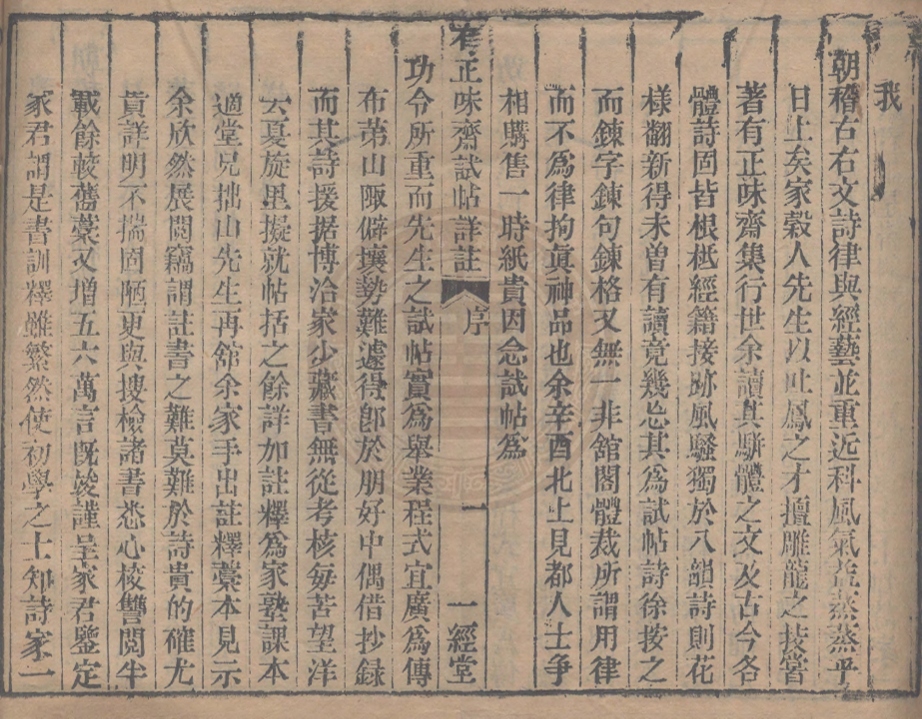 我
朝稽古右文詩律與經藝並重近科風氣益蒸蒸乎
日上矣家穀人先生以吐鳳之才擅雕龍之技嘗
著有正味齋集行世余讀其駢體之文及古今各
體詩固皆根柢經籍接跡風騷獨於八韻詩則花
樣翻新得未曽有讀竟幾忘其為試帖詩徐按之
而鍊字鍊句鍊格又無一非舘閣體裁所謂用律
而不為律拘眞神品也余辛酉北上見都人士爭
相購售一時紙貴因念試帖為
有正味齋試帖詳註 序 一 一經堂
功令所重而先生之試帖實為舉業程式宜廣為傳
布苐山陬僻壤勢難遽得卽於朋好中偶借抄録
而其詩援据博洽家少藏書無從考核每苦望洋
去夏旋里擬就帖括之餘詳加註釋為家塾課本
適堂兄拙山先生再舘余家手出註釋藁本見示
余欣然展閱竊謂註書之難莫難於詩貴的確尤
貴詳明不揣固陋更與搜檢諸書悉心校讐閱半
載餘較舊藁又增五六萬言既竣謹呈家君鑒定
家君謂是書訓釋雖繁然使初學之士知詩家一